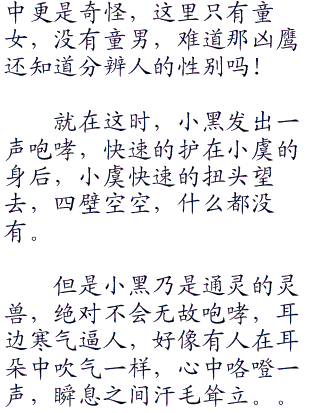 中更是奇怪，这里只有童
女，没有童男，难道那凶鹰
还知道分辨人的性别吗！
就在这时，小黑发出一
声咆哮，快速的护在小虞的
身后，小虞快速的扭头望
去，四壁空空，什么都没
有。
但是小黑乃是通灵的灵
兽，绝对不会无故咆哮，耳
边寒气逼人，好像有人在耳
朵中吹气一样，心中咯噔一
声，瞬息之间汗毛耸立。。